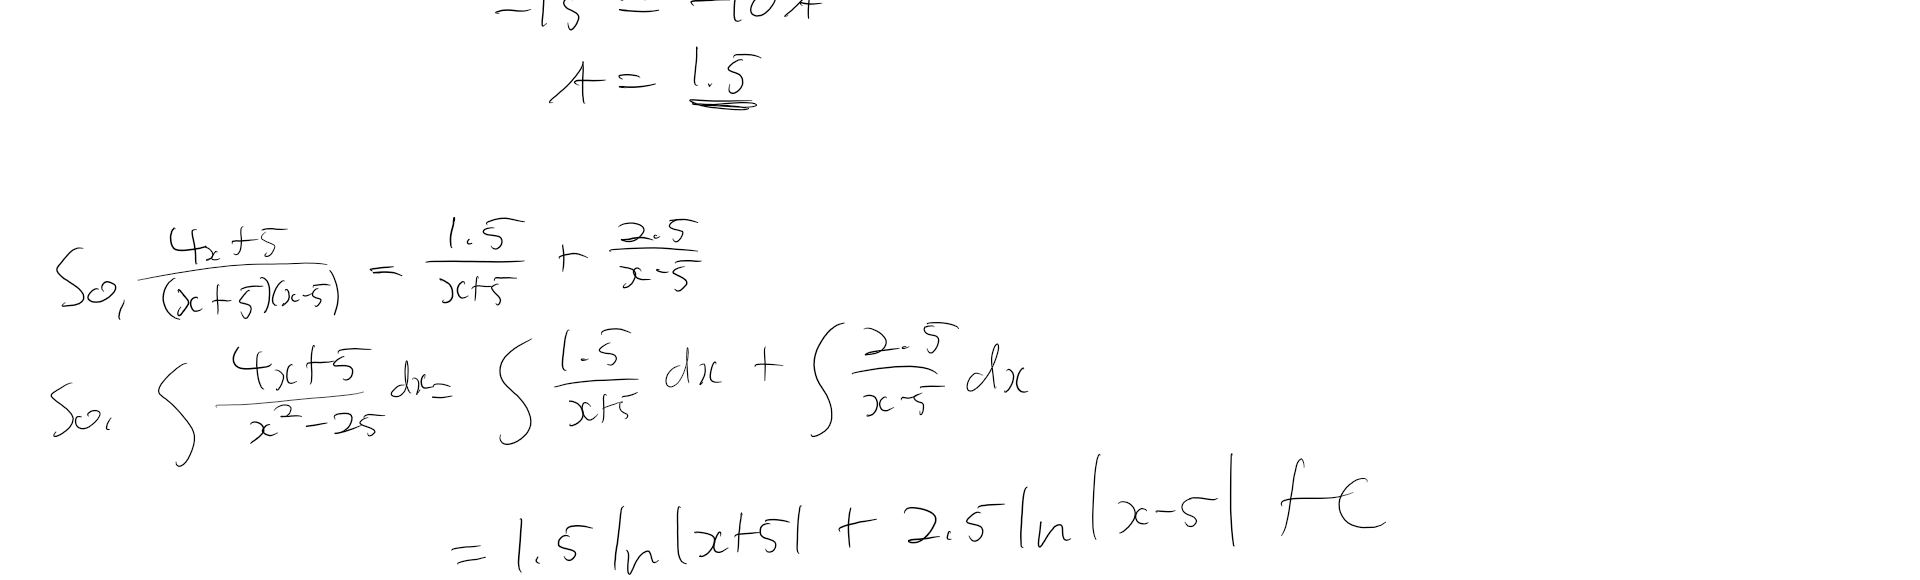 -15 = -10A
A = 1.5
So, (4x+5)/((x+5)(x-5)) = 1.5/(x+5) + 2.5/(x-5)
So, ∫ (4x+5)/(x²-25) dx = ∫ 1.5/(x+5) dx + ∫ 2.5/(x-5) dx
= 1.5 ln|x+5| + 2.5 ln|x-5| + C